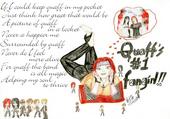 If I could keep quaff in my pocket
Just think how great that would be
A picture of quaff
in a locket
Never a happier me
Surrounded by quaff
Never do I feel
more alive
For quaff the band
is all magic
Helping my soul
to thrive
Quaff's
#1
fangirl!!